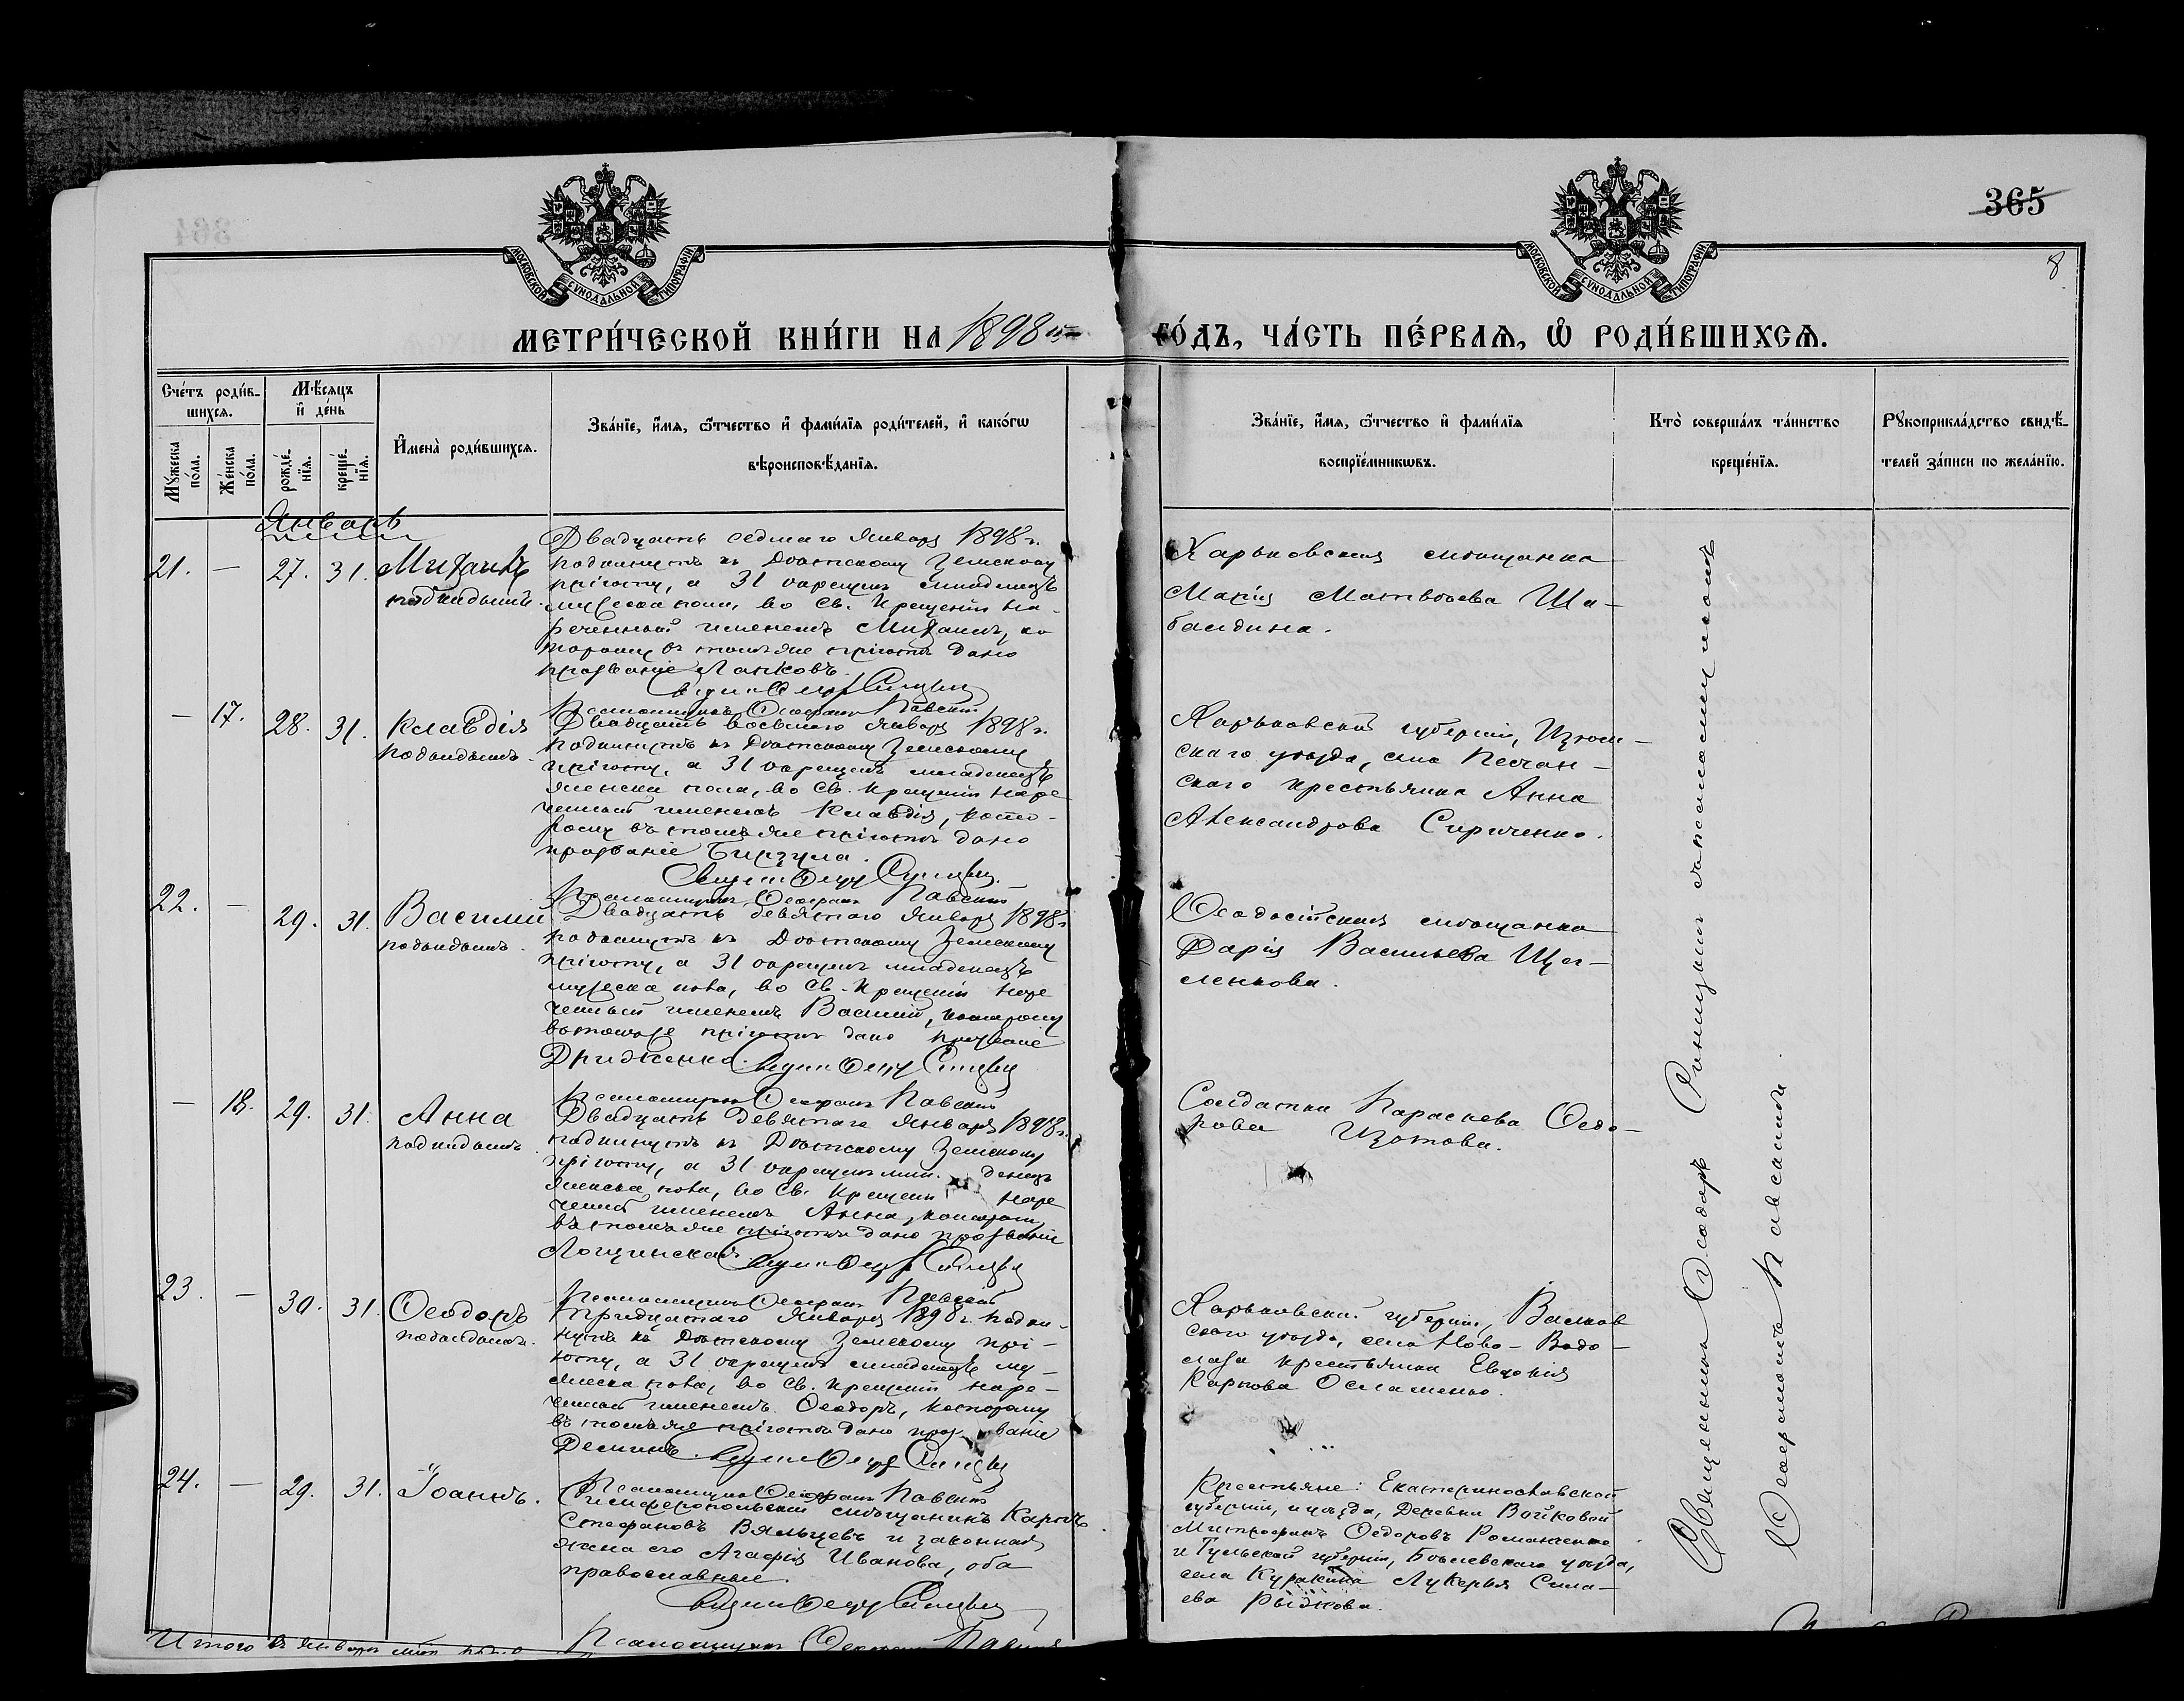 365
8
МОСКОВСКОЙ СѴНОДАЛЬНОЙ ТИПОГРАФІИ
МОСКОВСКОЙ СѴНОДАЛЬНОЙ ТИПОГРАФІИ
МЕТРИ́ЧЕСКОЙ КНИ́ГИ НА 1898 й
ГО́ДЪ, ЧА́СТЬ ПЕ́РВАѦ, Ѽ РОДИ́ВШИХСѦ.
Сче́тъ роди́в-
шихсѧ.
Мꙋ́жеска по́ла.
Же́нска по́ла.
Мѣ́сяцъ
и҆ де́нь
рожде́-
нїѧ.
креще́-
нїѧ.
И҆мена̀ роди́вшихсѧ.
Зва́нїе, и҆́мѧ, ѻ҆́тчество и҆ фами́лїѧ роди́телей, и҆ како́гѡ
вѣроисповѣ́данїѧ.
Зва́нїе, и҆́мѧ, ѻ҆́тчество и҆ фами́лїѧ
воспрїе́мникѡвъ.
Кто̀ соверша́лъ та́инство
креще́нїѧ.
Рꙋкоприкла́дство свидѣ́-
телей за́писи по жела́нїю.
Январь
21. — 27. 31. Михаилъ
подкидышъ.
Двадцать седмаго Января 1898 г.
подкинутъ къ Дѣтскому Земскому
пріюту, а 31 окрещенъ младенецъ
мужеска пола, во Св. Крещеніи на-
реченный именемъ Михаилъ, ко
торому въ томъ же пріютѣ дано
прозваніе Лапковъ.
Псаломщикъ Ѳеофанъ Павскій
Харьковская мѣщанка
Марія Матвѣева Ша-
балдина.
— 17. 28. 31. Клавдія
подкидышъ.
Двадцать восьмаго Января 1898 г.
подкинутъ къ Дѣтскому Земскому
пріюту, а 31 окрещенъ младенецъ
женска пола, во Св. Крещеніи наре
ченный именемъ Клавдія, кото-
рому въ томъ же пріютѣ дано
прозваніе Бирзула.
Псаломщикъ Ѳеофанъ Павскій
Харьковской губерніи, Изюм-
скаго уѣзда, села Песчан-
скаго крестьянка Анна
Александрова Сириченко.
22. — 29. 31. Василій
подкидышъ.
Двадцать девятаго Января 1898 г
подкинутъ къ Дѣтскому Земскому
пріюту, а 31 окрещенъ младенецъ
мужеска пола, во Св. Крещеніи наре
ченный именемъ Василій, которому
въ томъ же пріютѣ дано прозваніе
Дридженко.
Псаломщикъ Ѳеофанъ Павскій
Ѳеодосійская мѣщанка
Дарія Васильева Щег-
ленкова.
— 18. 29. 31. Анна
подкидышъ
Двадцать девятаго Января 1898 г.
подкинутъ къ Дѣтскому Земскому
пріюту, а 31 окрещенъ мла денецъ
женска пола, во Св. Крещеніи наре
ченный именемъ Анна, которому
въ томъ же пріютѣ дано прозваніе
Лощинская.
Псаломщикъ Ѳеофанъ Павскій
Солдатка Параскева Ѳедо-
рова Изотова.
23. — 30. 31. Ѳеодоръ
подкидышъ.
Тридцатаго Января 1898 г. подки-
нутъ къ Дѣтскому Земскому прі-
юту, а 31 окрещенъ младенецъ му-
жеска пола, во Св. Крещеніи наре-
ченный именемъ Ѳеодоръ, которому
въ томъ же пріютѣ дано проз ваніе
Деминъ.
Псаломщикъ Ѳеофанъ Павскій
Харьковской губерніи, Валков
скаго уѣзда, села Ново-Водо-
лага крестьянка Евдокія
Карпова
24. — 29. 31. Іоаннъ.
Симферопольскій мѣщанинъ Карпъ
Стефановъ Вяльцевъ и законная
жена его Агафія Иванова, оба
православные.
Псаломщикъ Ѳеофанъ Павскій
Крестьяне: Екатеринославской
губерніи, и уѣзда, Деревни Войковой
Митрофанъ Ѳедоровъ Романченко
и Тульской губерніи, Бѣлевскаго уѣзда,
села Куракина Лукерья Сила-
ева Рыжкова.
Священникъ Ѳеодоръ съ псаломщикомъ
Ѳеофаномъ Павскимъ.
Итого въ январѣ